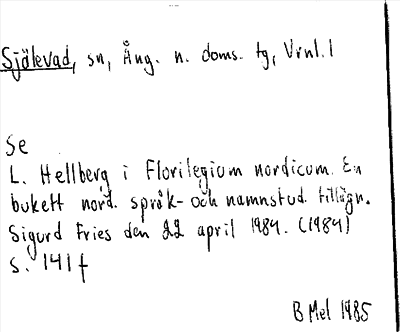 Själevad, sn, Ång. n. doms. tg, Vrnl. l
Se
L. Hellberg i Florilegium nordicum. En
bukett nord. språk- och namnstud. tillägn.
Sigurd Fries den 22 april 1984. (1984)
s. 141 f
B Mel 1985